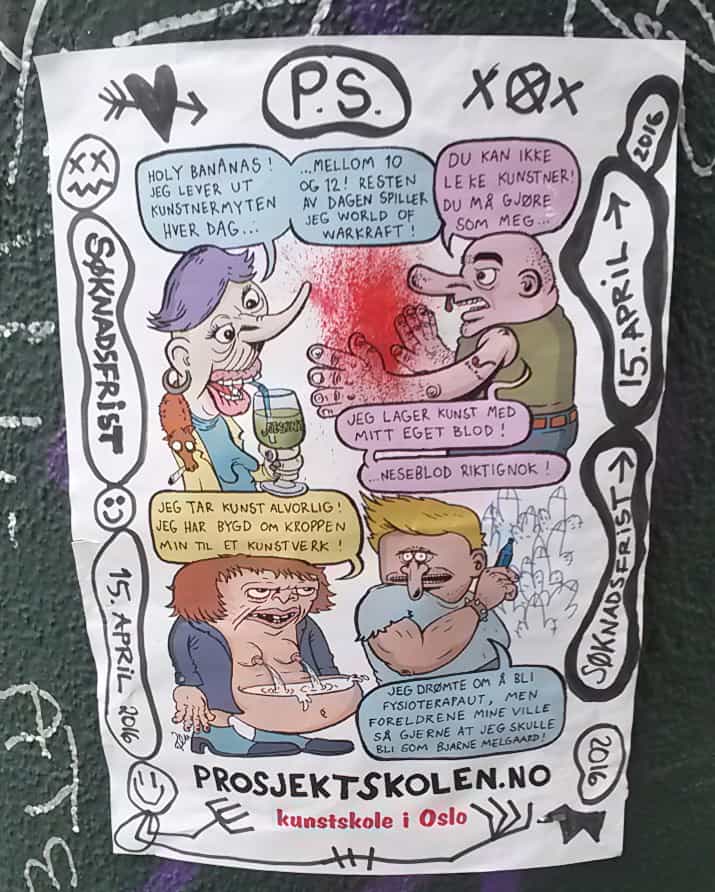 P.S.
X X X
2016
HOLY BANANAS!
JEG LEVER UT
KUNSTNERMYTEN
HVER DAG...
...MELLOM 10
OG 12! RESTEN
AV DAGEN SPILLER
JEG WORLD OF
WARKRAFT!
DU KAN IKKE
LEKE KUNSTNER!
DU MÅ GJØRE
SOM MEG...
SØKNADSFRIST
15. APRIL →
JEG LAGER KUNST MED
MITT EGET BLOD!
...NESEBLOD RIKTIGNOK!
JEG TAR KUNST ALVORLIG!
JEG HAR BYGD OM KROPPEN
MIN TIL ET KUNSTVERK!
SØKNADSFRIST →
15. APRIL 2016
JEG DRØMTE OM Å BLI
FYSIOTERAPAUT, MEN
FORELDRENE MINE VILLE
SÅ GJERNE AT JEG SKULLE
BLI SOM BJARNE MELGAARD!
2016
PROSJEKTSKOLEN.NO
kunstskole i Oslo